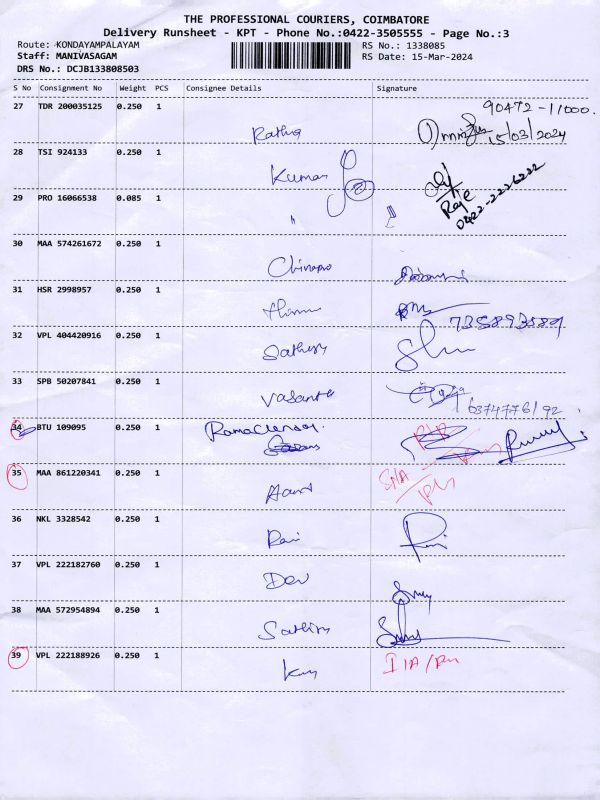 THE PROFESSIONAL COURIERS, COIMBATORE
Delivery Runsheet - KPT - Phone No.:0422-3505555 - Page No.:3
Route: KONDAYAMPALAYAM
Staff: MANIVASAGAM
DRS No.: DCJB133808503
RS No.: 1338085
RS Date: 15-Mar-2024
S No Consignment No Weight PCS Consignee Details Signature
27 TDR 200035125 0.250 1 90472-11000.
15/03/2024
28 TSI 924133 0.250 1 Kumar
29 PRO 16066538 0.085 1 " Raje
0422-2226222
30 MAA 574261672 0.250 1
31 HSR 2998957 0.250 1
7358935889
32 VPL 404420916 1 0.250
33 SPB 50207841 0.250 1 Vasantha
6374776192
34 BTU 109095 0.250 1
35 MAA 861220341 0.250 1
36 NKL 3328542 0.250 1 Ravi
37 VPL 222182760 0.250 1 Dev
38 MAA 572954894 0.250 1
39 VPL 222188926 0.250 1